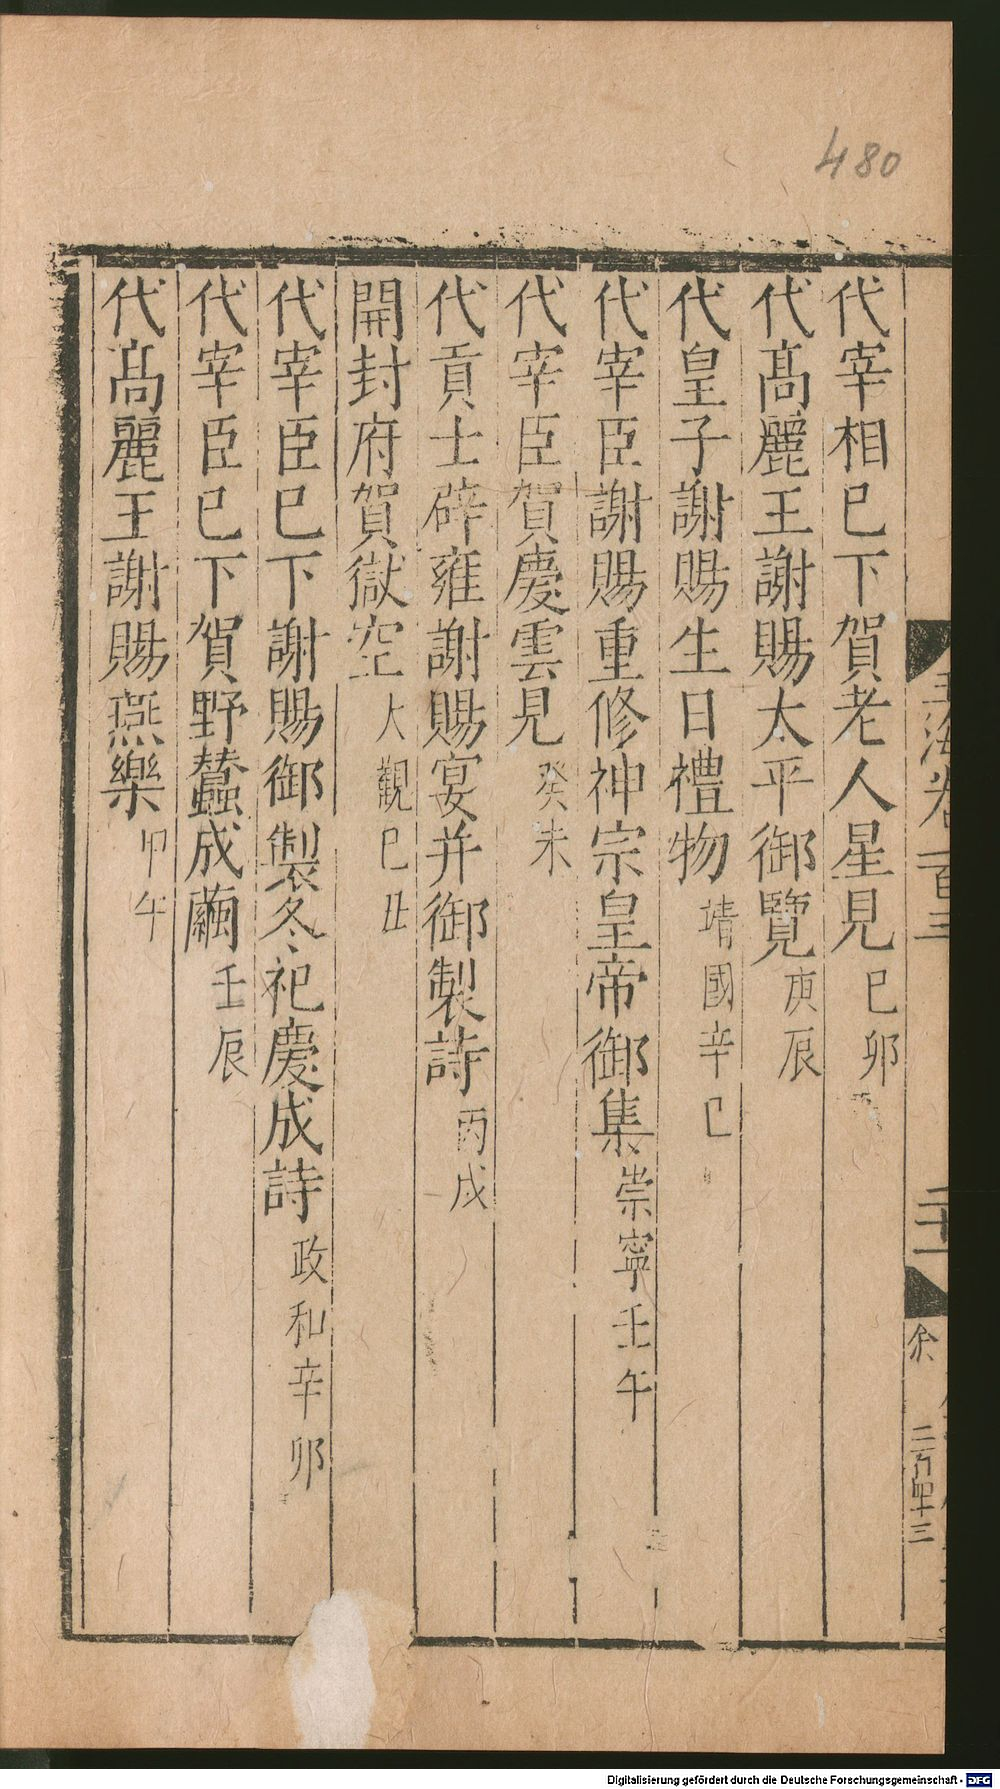 480
代宰相巳下賀老人星見 巳卯
代髙麗王謝賜太平御覽 庚辰
代皇子謝賜生日禮物 靖國辛巳
代宰臣謝賜重修神宗皇帝御集 崇寧壬午
代宰臣賀慶雲見 癸未
代貢士辟雍謝賜宴并御製詩 丙戌
開封府賀獄空 大觀巳丑
代宰臣巳下謝賜御製冬祀慶成詩 政和辛卯
代宰臣巳下賀野蠶成繭 壬辰
代髙麗王謝賜燕樂 甲午
玉海卷二百三
二十一
余
二百四十三
Digitalisierung gefördert durch die Deutsche Forschungsgemeinschaft - DFG